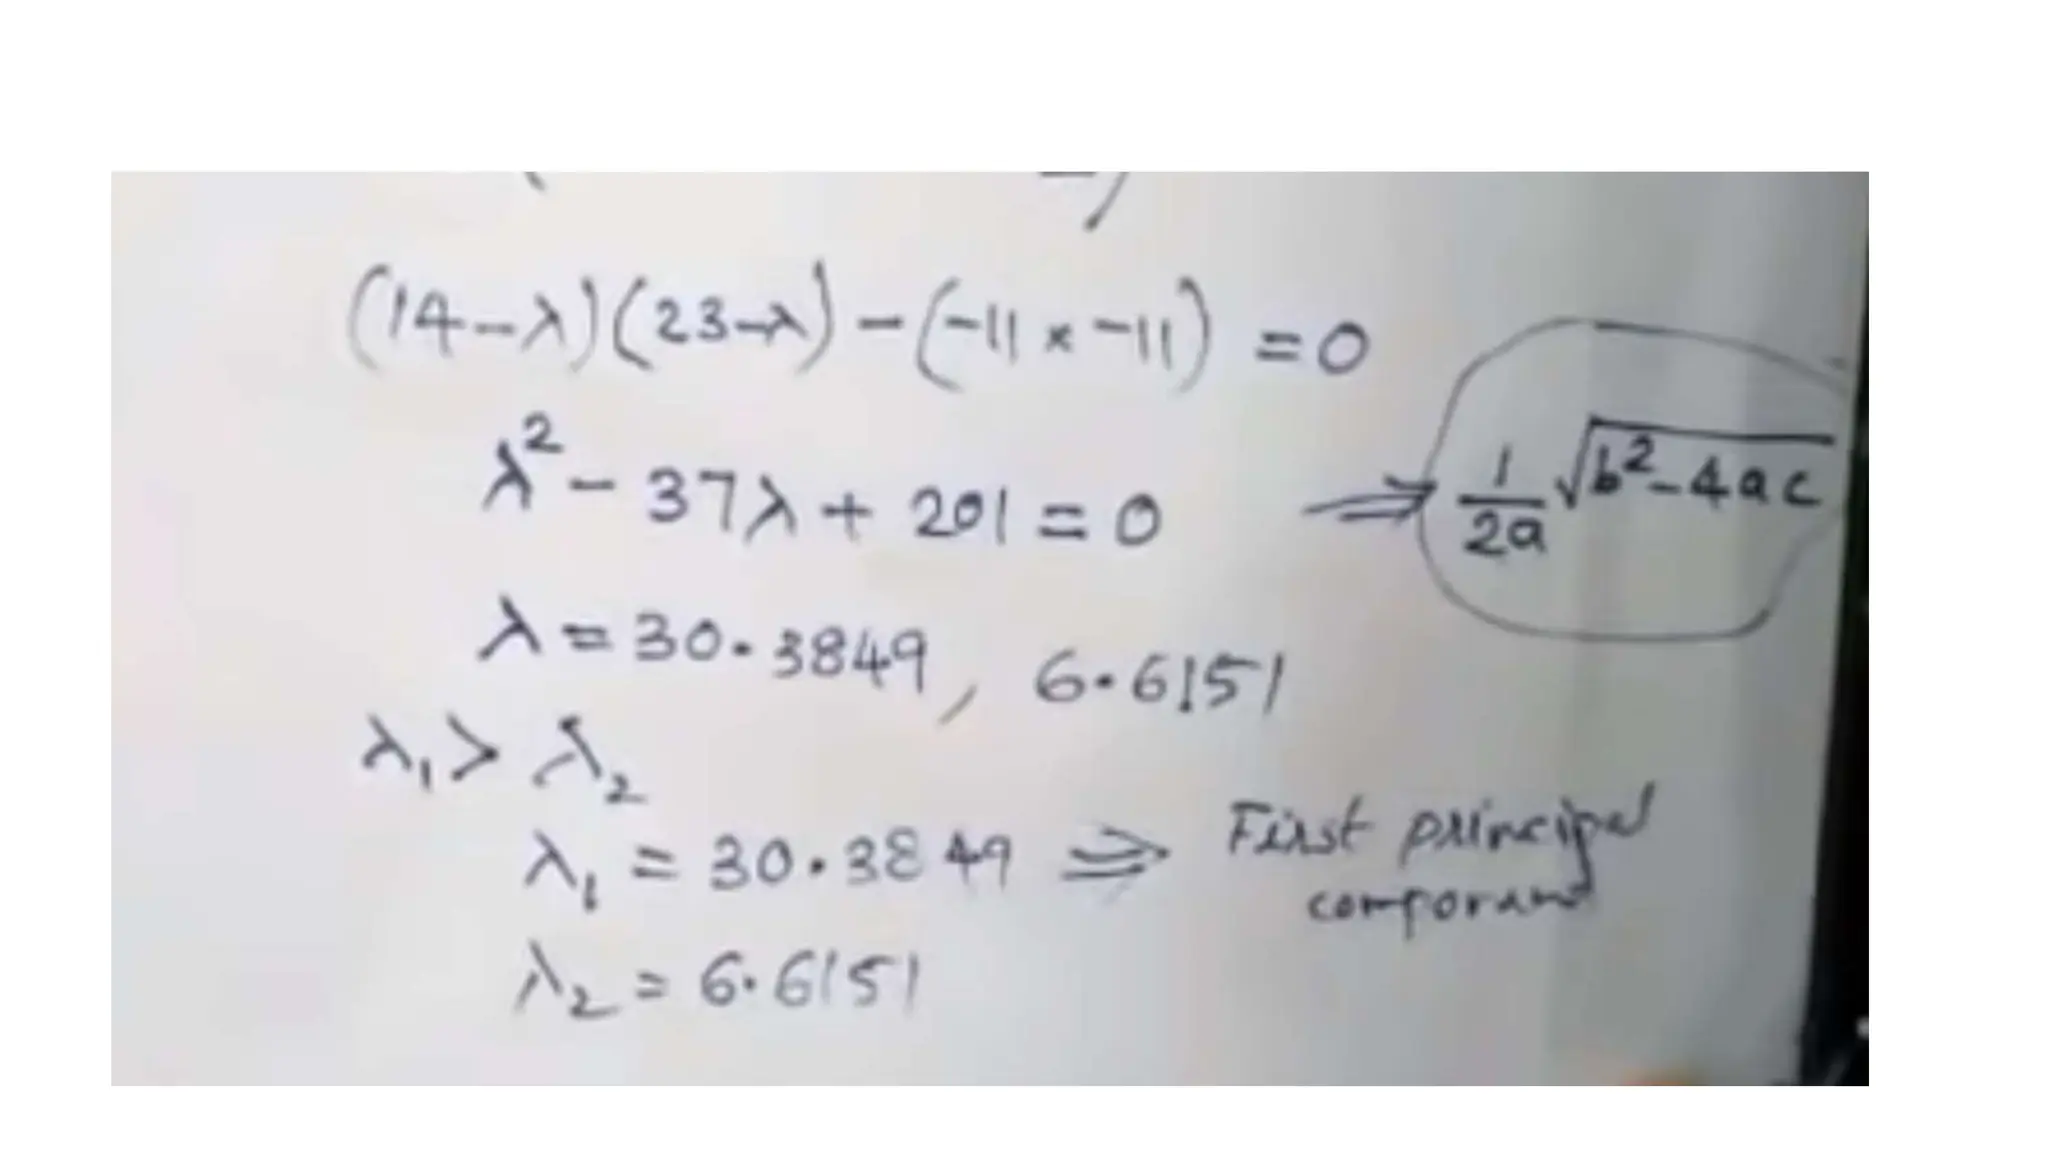 (14-λ)(23-λ) - (-11 × -11) = 0
λ² - 37λ + 201 = 0 ⇒ 1/2a √b²-4ac
λ = 30.3849, 6.6151
λ₁ > λ₂
λ₁ = 30.3849 ⇒ First principal
componant
λ₂ = 6.6151